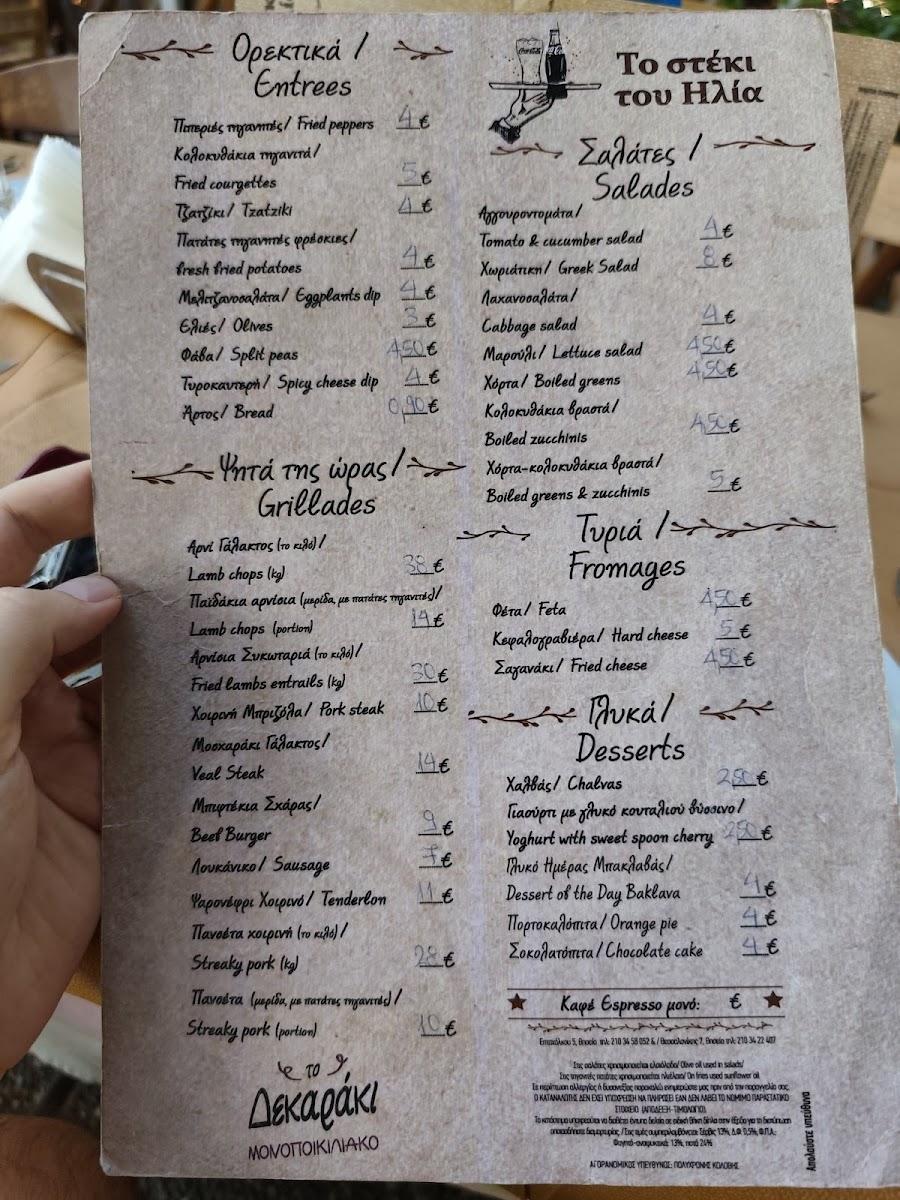 Ορεκτικά /
Entrees
Πιπεριές τηγανητές/ Fried peppers 4 €
Κολοκυθάκια τηγανιτά/
Fried courgettes 5 €
Τζατζίκι/ Tzatziki 4 €
Πατάτες τηγανητές φρέσκιες/
fresh fried potatoes 4 €
Μελιτζανοσαλάτα/ Eggplants dip 4 €
Ελιές/ Olives 3 €
Φάβα/ Split peas 4,50 €
Τυροκαυτερή/ Spicy cheese dip 4 €
Άρτος/ Bread 0,90 €
Ψητά της ώρας/
Grillades
Αρνί Γάλακτος (το κιλό)/
Lamb chops (kg) 38 €
Παϊδάκια αρνίσια (μερίδα, με πατάτες τηγανιτές)/
Lamb chops (portion) 14 €
Αρνίσια Συκωταριά (το κιλό)/
Fried lambs entrails (kg) 30 €
Χοιρινή Μπριζόλα/ Pork steak 10 €
Μοσχαράκι Γάλακτος/
Veal Steak 14 €
Μπιφτέκια Σχάρας/
Beef Burger 9 €
Λουκάνικο/ Sausage 7 €
Ψαρονέφρι Χοιρινό/ Tenderlon 11 €
Πανσέτα χοιρινή (το κιλό)/
Streaky pork (kg) 28 €
Πανσέτα (μερίδα, με πατάτες τηγανιτές)/
Streaky pork (portion) 10 €
το
Δεκαράκι
ΜΟΝΟΠΟΙΚΙΛΙΑΚΟ
Coca-Cola
Το στέκι
του Ηλία
Σαλάτες /
Salades
Αγγουροντομάτα/
Tomato & cucumber salad 4 €
Χωριάτικη/ Greek Salad 8 €
Λαχανοσαλάτα/
Cabbage salad 4 €
Μαρούλι/ Lettuce salad 4,50 €
Χόρτα/ Boiled greens 4,50 €
Κολοκυθάκια βραστά/
Boiled zucchinis 4,50 €
Χόρτα-κολοκυθάκια βραστά/
Boiled greens & zucchinis 5 €
Τυριά /
Fromages
Φέτα/ Feta 4,50 €
Κεφαλογραβιέρα/ Hard cheese 5 €
Σαγανάκι/ Fried cheese 4,50 €
Γλυκά/
Desserts
Χαλβάς/ Chalvas 2,50 €
Γιαούρτι με γλυκό κουταλιού βύσσινο/
Yoghurt with sweet spoon cherry 2,50 €
Γλυκό Ημέρας Μπακλαβάς/
Dessert of the Day Baklava 4 €
Πορτοκαλόπιτα/ Orange pie 4 €
Σοκολατόπιτα/ Chocolate cake 4 €
Καφέ Espresso μονό: €
Επταχάλκου 5, Θησείο τηλ: 210 34 58 052 & / Θεσσαλονίκης 7, Θησείο τηλ: 210 34 22 407
Στις σαλάτες χρησιμοποιείται ελαιόλαδο/ Olive oil used in salads/
Στις τηγανιτές πατάτες χρησιμοποιείται ηλιέλαιο/ On fries used sunflower oil
Σε περίπτωση αλλεργίας ή δυσανεξίας παρακαλώ ενημερώστε μας πριν από την παραγγελία σας.
Ο ΚΑΤΑΝΑΛΩΤΗΣ ΔΕΝ ΕΧΕΙ ΥΠΟΧΡΕΩΣΗ ΝΑ ΠΛΗΡΩΣΕΙ ΕΑΝ ΔΕΝ ΛΑΒΕΙ ΤΟ ΝΟΜΙΜΟ ΠΑΡΑΣΤΑΤΙΚΟ
ΣΤΟΙΧΕΙΟ (ΑΠΟΔΕΙΞΗ-ΤΙΜΟΛΟΓΙΟ).
Το κατάστημα υποχρεούται να διαθέτει έντυπα δελτία σε ειδική θήκη δίπλα στην έξοδο για τη διατύπωση
οποιασδήποτε διαμαρτυρίας. / Στις τιμές συμπεριλαμβάνονται Σέρβις 13%, Δ.Φ. 0,5%, Φ.Π.Α.:
Φαγητό-αναψυκτικά: 13%, ποτά 24%
ΑΓΟΡΑΝΟΜΙΚΟΣ ΥΠΕΥΘΥΝΟΣ: ΠΟΛΥΧΡΟΝΗΣ ΚΟΛΟΒΗΣ
Απολαύστε υπεύθυνα